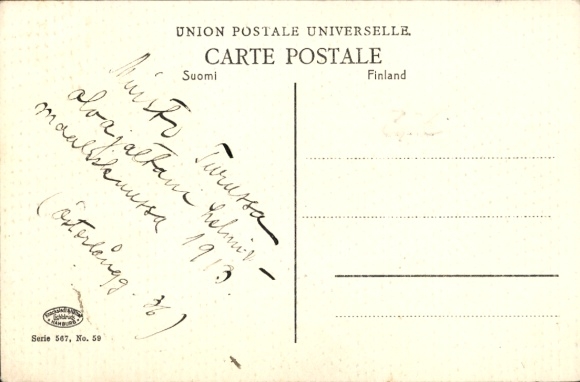 UNION POSTALE UNIVERSELLE.
CARTE POSTALE
Suomi Finland
Muisto Turussa
oloajaltani helmi-
maaliskuussa 1913.
(Österlångg. 36)
HAMBURG
Serie 567, No. 59